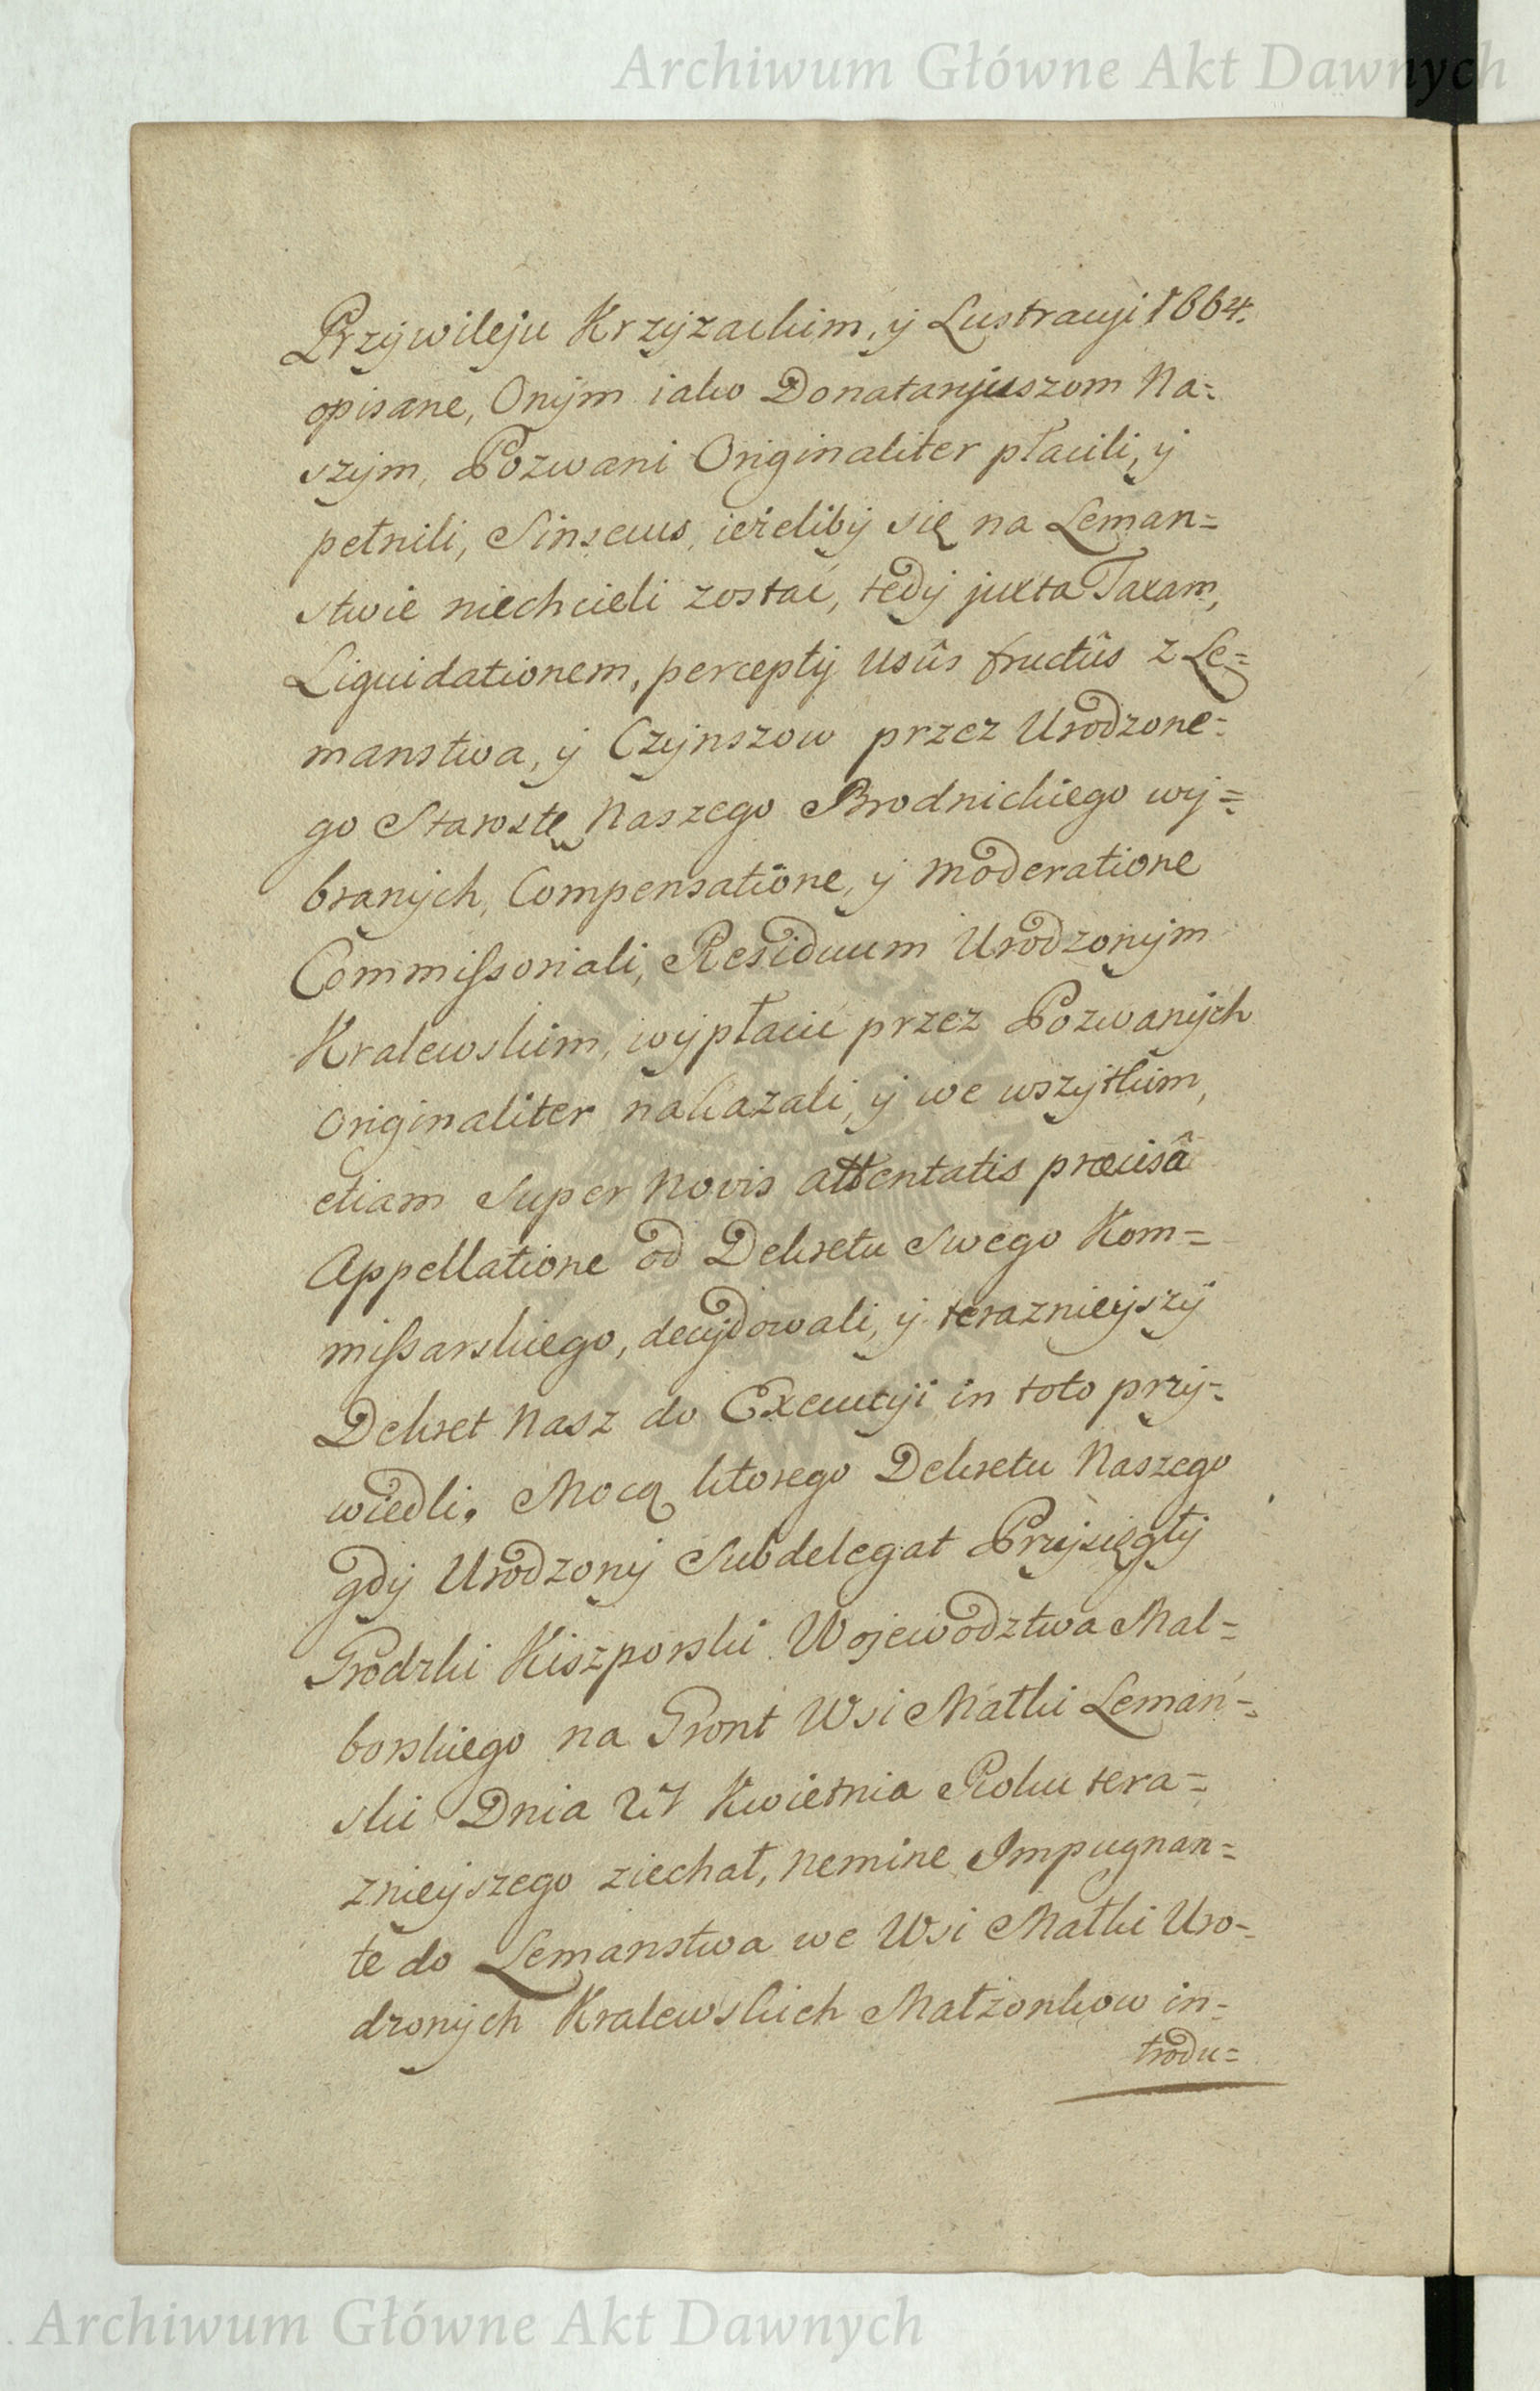 Archiwum Główne Akt Dawnych
Przywileju Krzyzackim, y Lustracyi 1664.
opisane, Onym iako Donataryuszom Na=
szym, Pozwani Originaliter płacili, y
pełnili, Sinsecus, ieżeliby się na Leman=
stwie niechcieli zostać, tedy juxta Taxam,
Liquidationem, percepty Usûs fructûs z Le=
manstwa, y Czynszow przez Urodzone=
go Starostę Naszego Brodnickiego wy=
branych, Compensatione, y moderatione
Commissoriali, Residuum Urodzonym
Kralewskim, wypłacić przez Pozwanych
Originaliter nakazali, y we wszytkim,
etiam Super Novis attentatis præcisâ
Appellatione od Dekretu Swego Kom=
missarskiego, decydowali, y teraznieyszy
Dekret Nasz do Execucyi in toto przy=
wiedli. Mocą ktorego Dekretu Naszego
gdy Urodzony Subdelegat Przysięgły
Grodzki Kiszporski Wojewodztwa Mal=
borskiego na Gront Wsi Matki Lemań=
ski Dnia 27 Kwietnia Roku tera=
znieyszego ziechał, nemine Impugnan=
te do Lemanstwa we Wsi Matki Uro=
dzonych Kralewskich Małżonkow in=
trodu=
Archiwum Główne Akt Dawnych